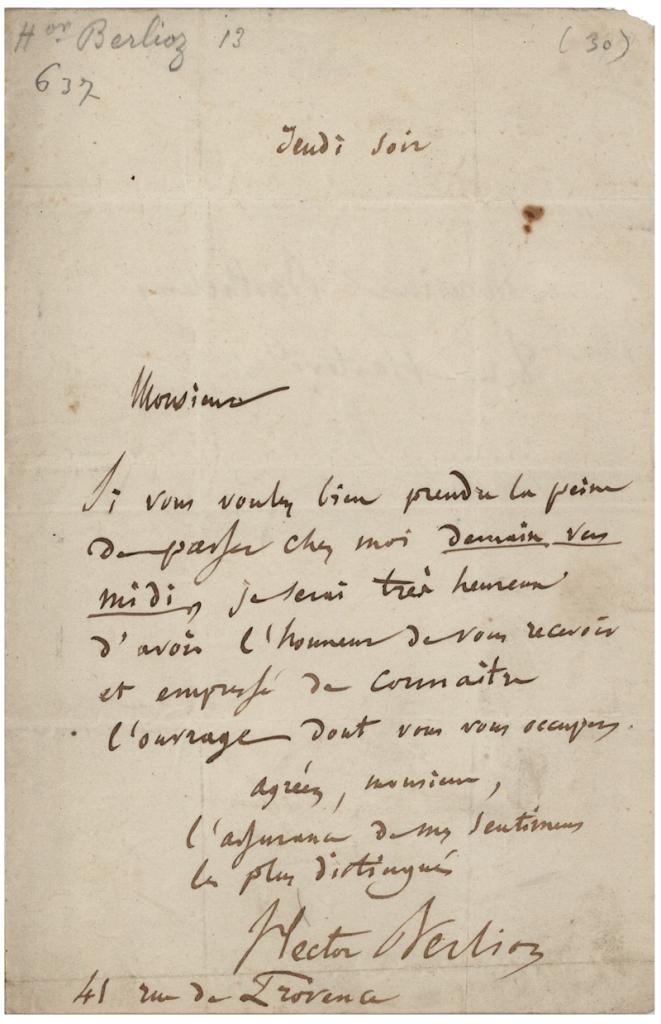 Hor Berlioz 13 (30)
637
Jeudi soir
Monsieur
Si vous voulez bien prendre la peine
de passer chez moi demain vers
midi, je serai très heureux
d'avoir l'honneur de vous recevoir
et empressé de connaître
l'ouvrage dont vous vous occupez.
agréez, monsieur,
l'assurance de mes sentimens
les plus distingués
Hector Berlioz
41 rue de Provence